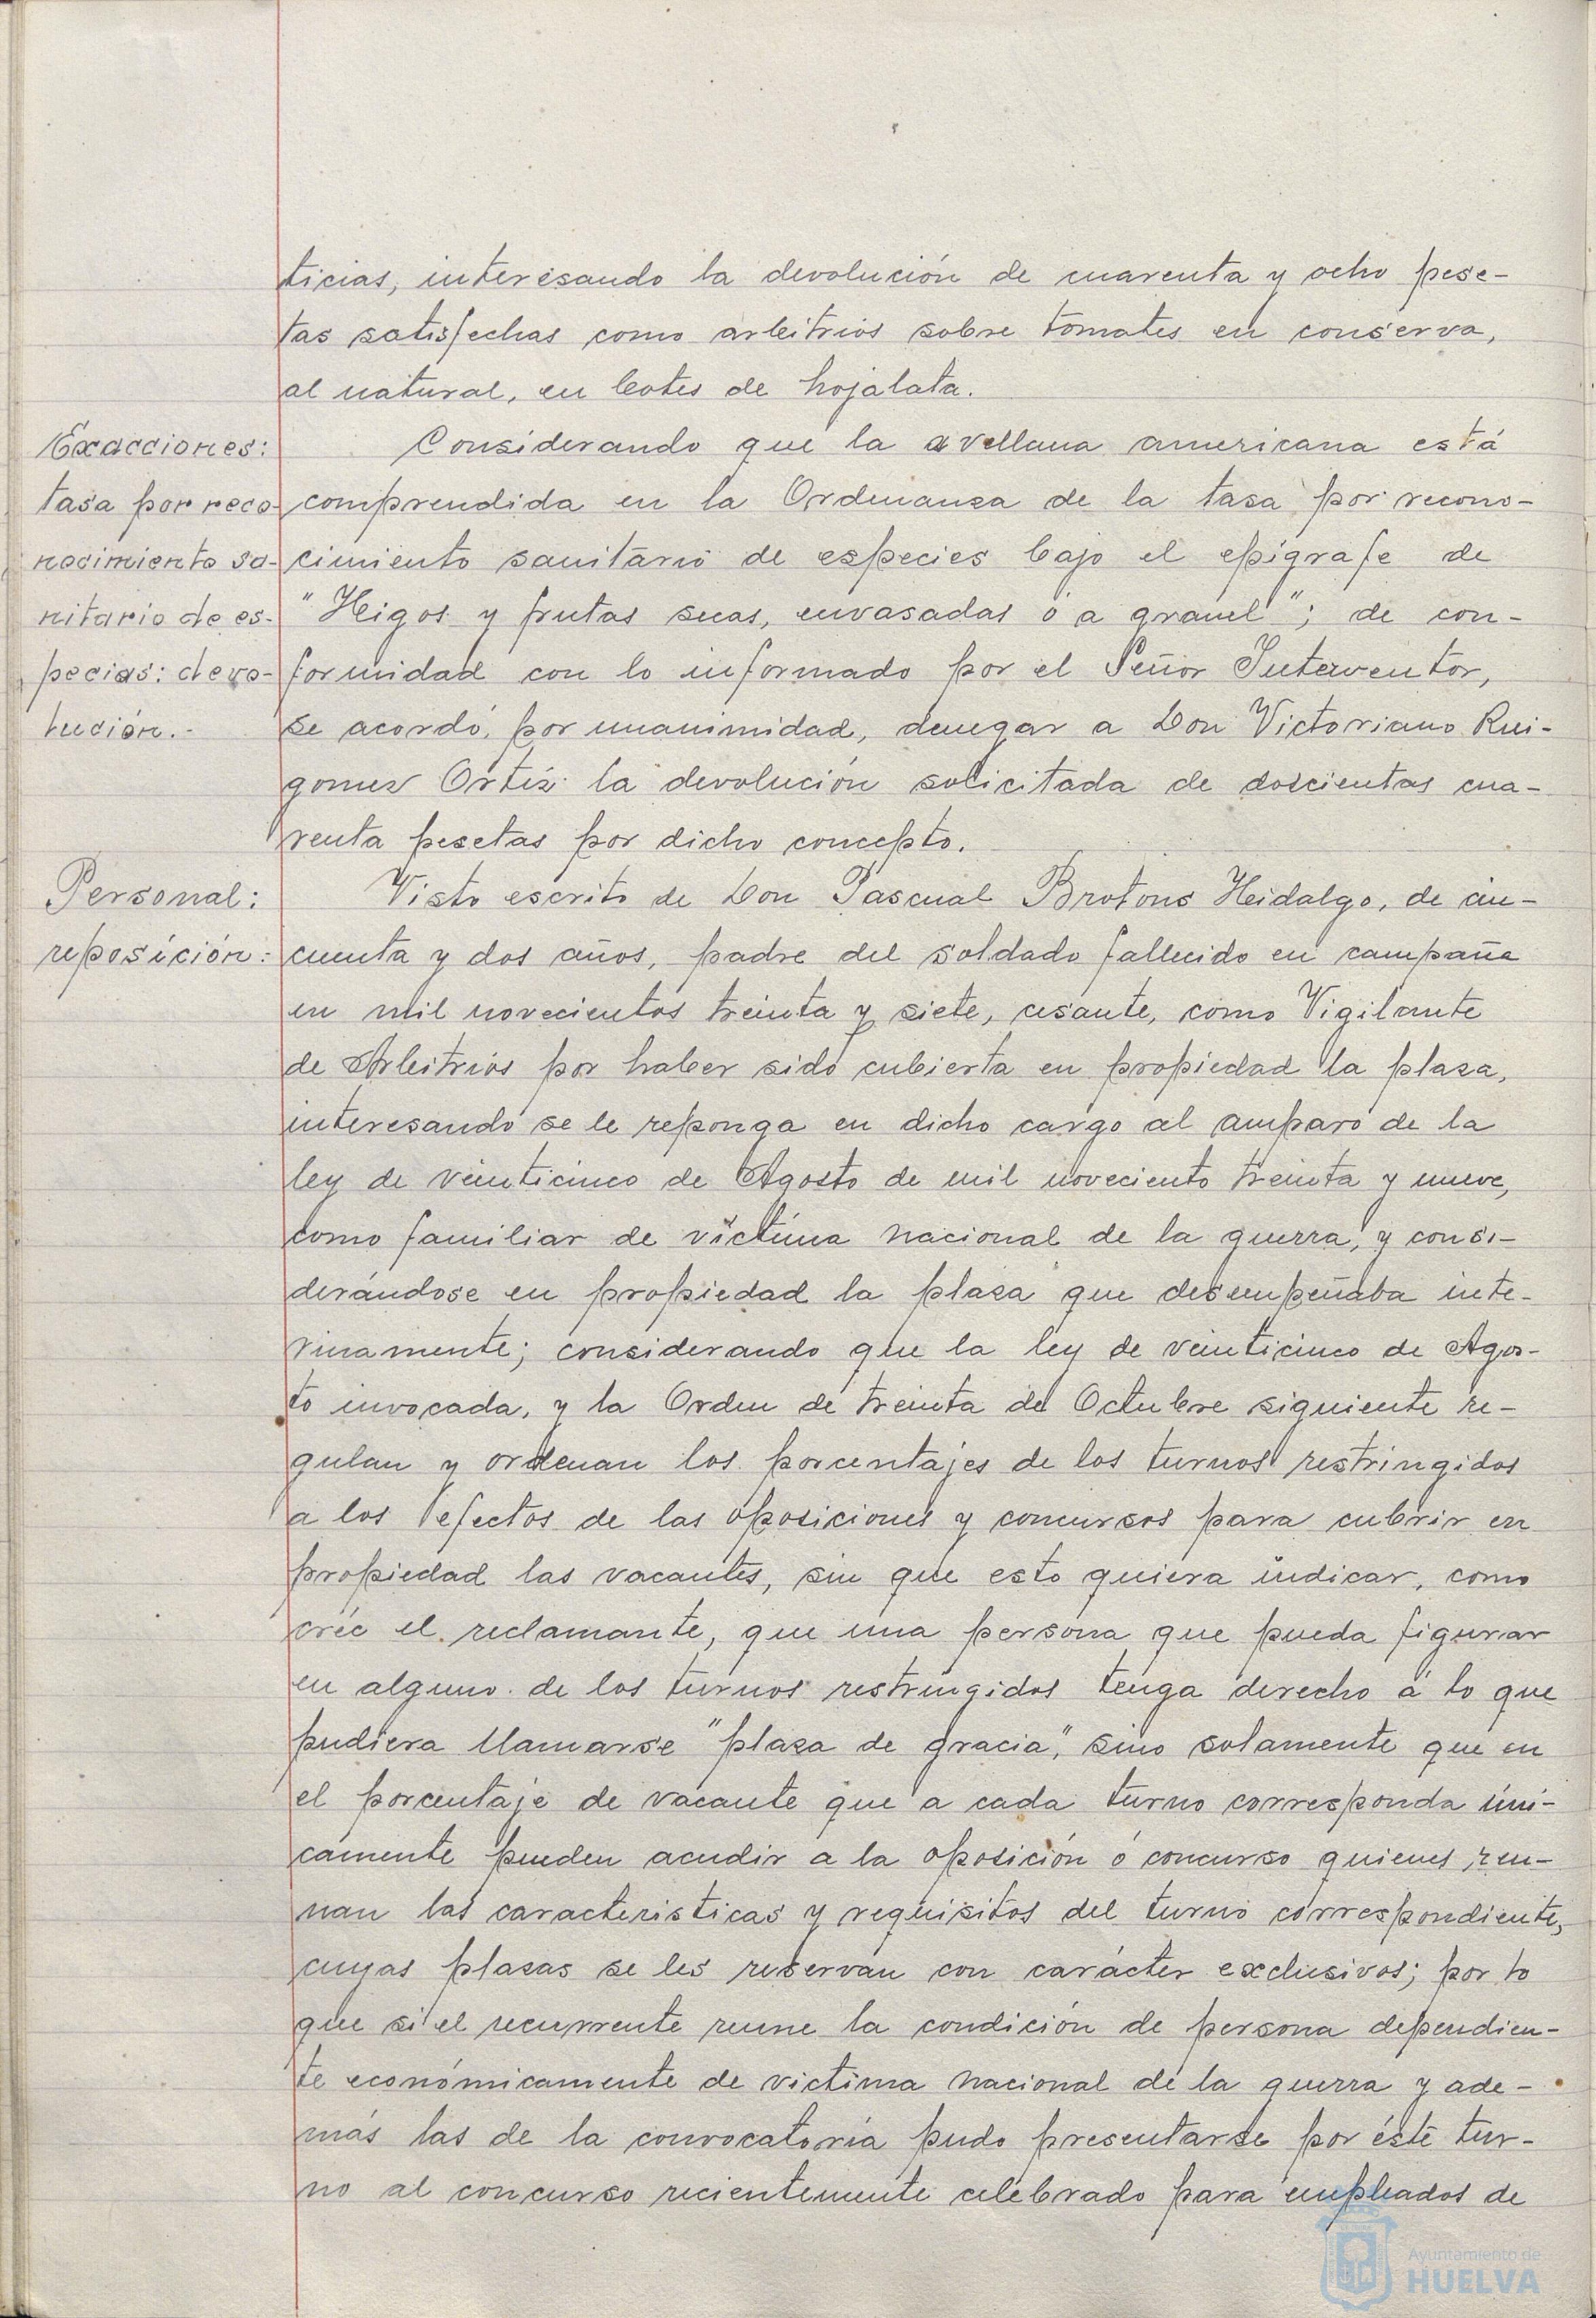 ticias, interesando la devolución de cuarenta y ocho pese-
tas satisfechas como arbitrios sobre tomates en conserva,
al natural, en botes de hojalata.
Exacciones:
tasa por reco-
nocimiento sa-
nitario de es-
pecias: devo-
lución.-
Considerando que la avellana americana está
comprendida en la Ordenanza de la tasa por recono-
cimiento sanitario de especies bajo el epígrafe de
"Higos y frutas secas, envasadas ó a granel"; de con-
formidad con lo informado por el Señor Interventor,
se acordó, por unanimidad, denegar a Don Victoriano Rui-
gomez Ortíz la devolución solicitada de doscientas cua-
renta pesetas por dicho concepto.
Personal:
reposición:
Visto escrito de Don Pascual Brotons Hidalgo, de cin-
cuenta y dos años, padre del soldado fallecido en campaña
en mil novecientos treinta y siete, cesante, como Vigilante
de Arbitrios por haber sido cubierta en propiedad la plaza,
interesando se le reponga en dicho cargo al amparo de la
ley de veinticinco de Agosto de mil noveciento treinta y nueve,
como familiar de víctima nacional de la guerra, y consi-
derándose en propiedad la plaza que desempeñaba inte-
rinamente; considerando que la ley de veinticinco de Agos-
to invocada, y la Orden de treinta de Octubre siguiente re-
gulan y ordenan los porcentajes de los turnos restringidos
a los efectos de las oposiciones y concursos para cubrir en
propiedad las vacantes, sin que esto quiera indicar, como
crée el reclamante, que una persona que pueda figurar
en alguno de los turnos restringidos tenga derecho á lo que
pudiera llamarse "plaza de gracia", sino solamente que en
el porcentaje de vacante que a cada turno corresponda úni-
camente pueden acudir a la oposición ó concurso quienes reu-
nan las caracteristicas y requisitos del turno correspondiente,
cuyas plazas se les reservan con carácter exclusivos; por lo
que si el recurrente reune la condición de persona dependien-
te económicamente de victima nacional de la guerra y ade-
más las de la convocatoria pudo presentarse por éste tur-
no al concurso recientemente celebrado para empleados de
Ayuntamiento de
HUELVA